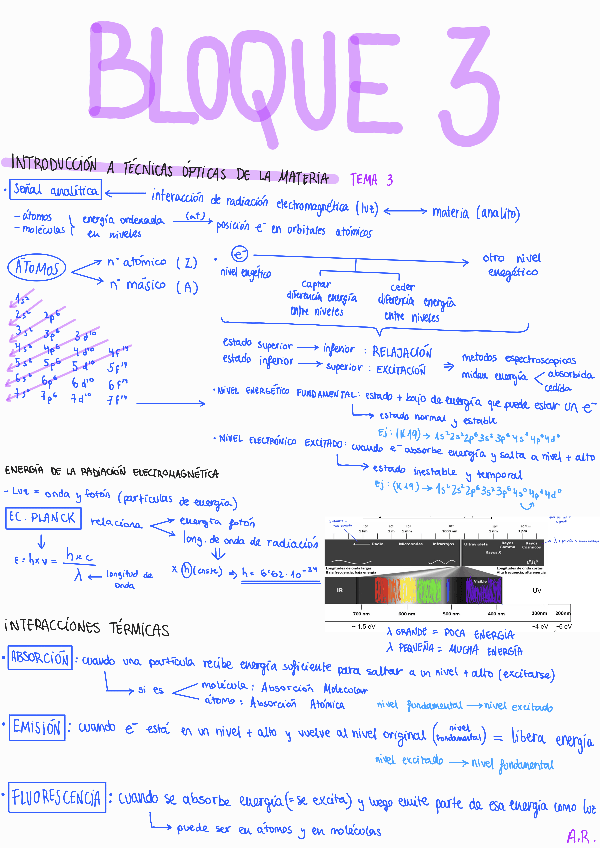 BLOQUE 3
INTRODUCCIÓN A TÉCNICAS ÓPTICAS DE LA MATERIA TEMA 3
· Señal analítica ← interacción de radiación electromagnética (luz) ↔ materia (analito)
- átomos
- moléculas } energía ordenada en niveles (at)→ posición e⁻ en orbitales atómicos
ÁTOMOS → nº atómico (Z)
→ nº másico (A)
· e⁻ → otro nivel energético
nivel engético
captar diferencia energía entre niveles
ceder diferencia energía entre niveles
1s²
2s² 2p⁶
3s² 3p⁶ 3d¹⁰
4s² 4p⁶ 4d¹⁰ 4f¹⁴
5s² 5p⁶ 5d¹⁰ 5f¹⁴
6s² 6p⁶ 6d¹⁰ 6f¹⁴
7s² 7p⁶ 7d¹⁰ 7f¹⁴
estado superior → inferior : RELAJACIÓN
estado inferior → superior : EXCITACIÓN
⇒ metodos espectroscopicos miden energía < absorbida
cedida
· NIVEL ENERGÉTICO FUNDAMENTAL: estado + bajo de energía que puede estar UN e⁻
→ estado normal y estable
Ej: (K19) → 1s² 2s² 2p⁶ 3s² 3p⁶ 4s¹ 4p⁰ 4d⁰
· NIVEL ELECTRÓNICO EXCITADO: cuando e⁻ absorbe energía y salta a nivel + alto
→ estado inestable y temporal
Ej: (K19) → 1s² 2s² 2p⁶ 3s² 3p⁶ 4s⁰ 4p¹ 4d⁰
ENERGÍA DE LA RADIACIÓN ELECTROMAGNÉTICA
- Luz = onda y fotón (partículas de energía)
EC. PLANCK relaciona → energía fotón
→ long. de onda de radiación
E = h × ν = h × c / λ ← longitud de onda
× h (cnste) ⇒ h = 6'62 · 10⁻³⁴
Microondas Infrarrojos Ultravioleta Rayos X Rayos Gamma Rayos Cósmicos
IR Visible UV
700 nm 600 nm 500 nm 400 nm 300nm 200nm
~ 1.5 eV ~4 eV ~6 eV
λ GRANDE = POCA ENERGÍA
λ PEQUEÑA = MUCHA ENERGÍA
INTERACCIONES TÉRMICAS
· ABSORCIÓN : cuando una partícula recibe energía suficiente para saltar a un nivel + alto (excitarse)
→ si es < molécula : Absorción Molecular
átomo : Absorción Atómica
nivel fundamental → nivel excitado
· EMISIÓN : cuando e⁻ está en un nivel + alto y vuelve al nivel original (nivel fundamental) = libera energía
nivel excitado → nivel fundamental
· FLUORESCENCIA : cuando se absorbe energía (= se excita) y luego emite parte de esa energía como luz
→ puede ser en átomos y en moléculas
A.R.